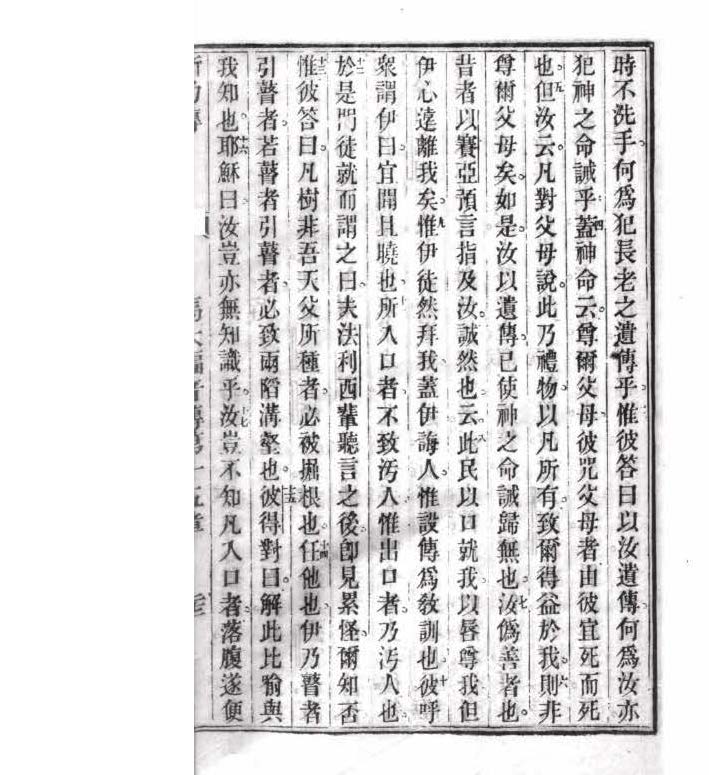 時不洗手。何爲犯長老之遺傳乎。三惟彼答曰以汝遺傳。何爲汝亦
犯神之命誡乎。四蓋神命云。尊爾父母。彼咒父母者。由彼宜死而死
也。五但汝云。凡對父母說。此乃禮物。以凡所有。致爾得益於我。六則非
尊爾父母矣。如是。汝以遺傳。已使神之命誡歸無也。七汝僞善者也。
昔者以賽亞預言指及汝。誠然也。八云此民以口就我。以唇尊我。但
伊心遠離我矣。九惟伊徒然拜我。蓋伊誨人。惟設傳爲敎訓也。十彼呼
衆謂伊曰。宜聞且曉也。十一所入口者。不致汚人。惟出口者。乃汚人也。
十二於是門徒就而謂之曰。夫法利西輩聽言之後。卽見累怪。爾知否。
十三惟彼答曰。凡樹非吾天父所種者。必被掘根也。十四任他也。伊乃瞽者
引瞽者。若瞽者引瞽者。必致兩陷溝壑也。十五彼得對曰。解此比喻與
我知也。十六耶穌曰。汝豈亦無知識乎。十七汝豈不知凡入口者。落腹遂便